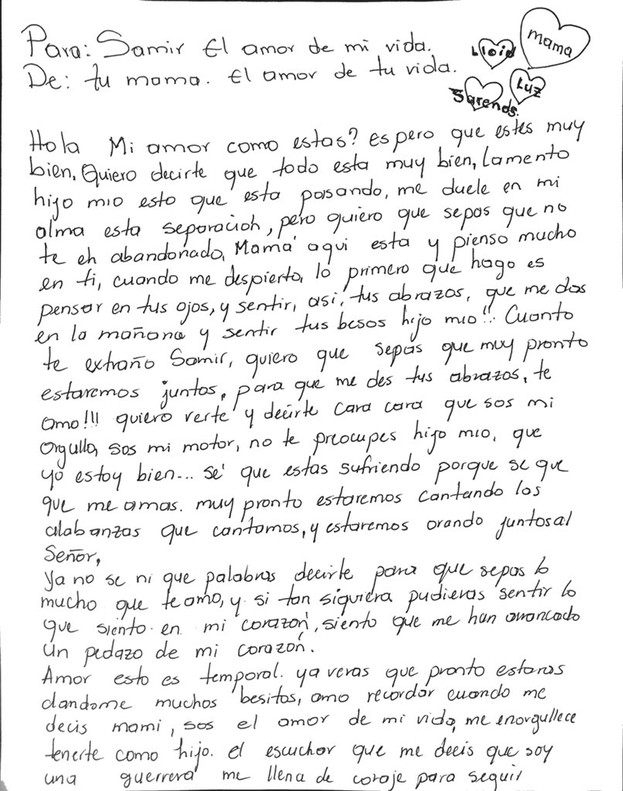 Para: Samir El amor de mi vida.
De: tu mama. El amor de tu vida.
Lloid
mama
Luz
Sarends.
Hola Mi amor como estas? espero que estes muy
bien, Quiero decirte que todo esta muy bien, Lamento
hijo mio esto que esta pasando, me duele en mi
alma esta separación, pero quiero que sepas que no
te eh abandonado, Mamá aqui esta y pienso mucho
en ti, cuando me despierto, lo primero que hago es
pensar en tus ojos, y sentir, asi, tus abrazos, que me das
en la mañana y sentir tus besos hijo mio!! Cuanto
te extraño Samir, quiero que sepas que muy pronto
estaremos juntos, para que me des tus abrazos, te
amo!!! quiero verte y decirte cara cara que sos mi
orgullo, sos mi motor, no te preocupes hijo mio, que
yo estoy bien... sé que estas sufriendo porque se que
que me amas. muy pronto estaremos cantando las
alabanzas que cantamos, y estaremos orando juntos al
Señor,
Ya no se ni que palabras decirte para que sepas lo
mucho que te amo, y si tan siquiera pudieras sentir lo
que siento en mi corazón, siento que me han arrancado
un pedazo de mi corazón.
Amor esto es temporal. ya veras que pronto estaras
dandome muchos besitos, amo recordar cuando me
decis mami, sos el amor de mi vida, me enorgullece
tenerte como hijo. el escuchar que me decis que soy
una guerrera me llena de coraje para seguir